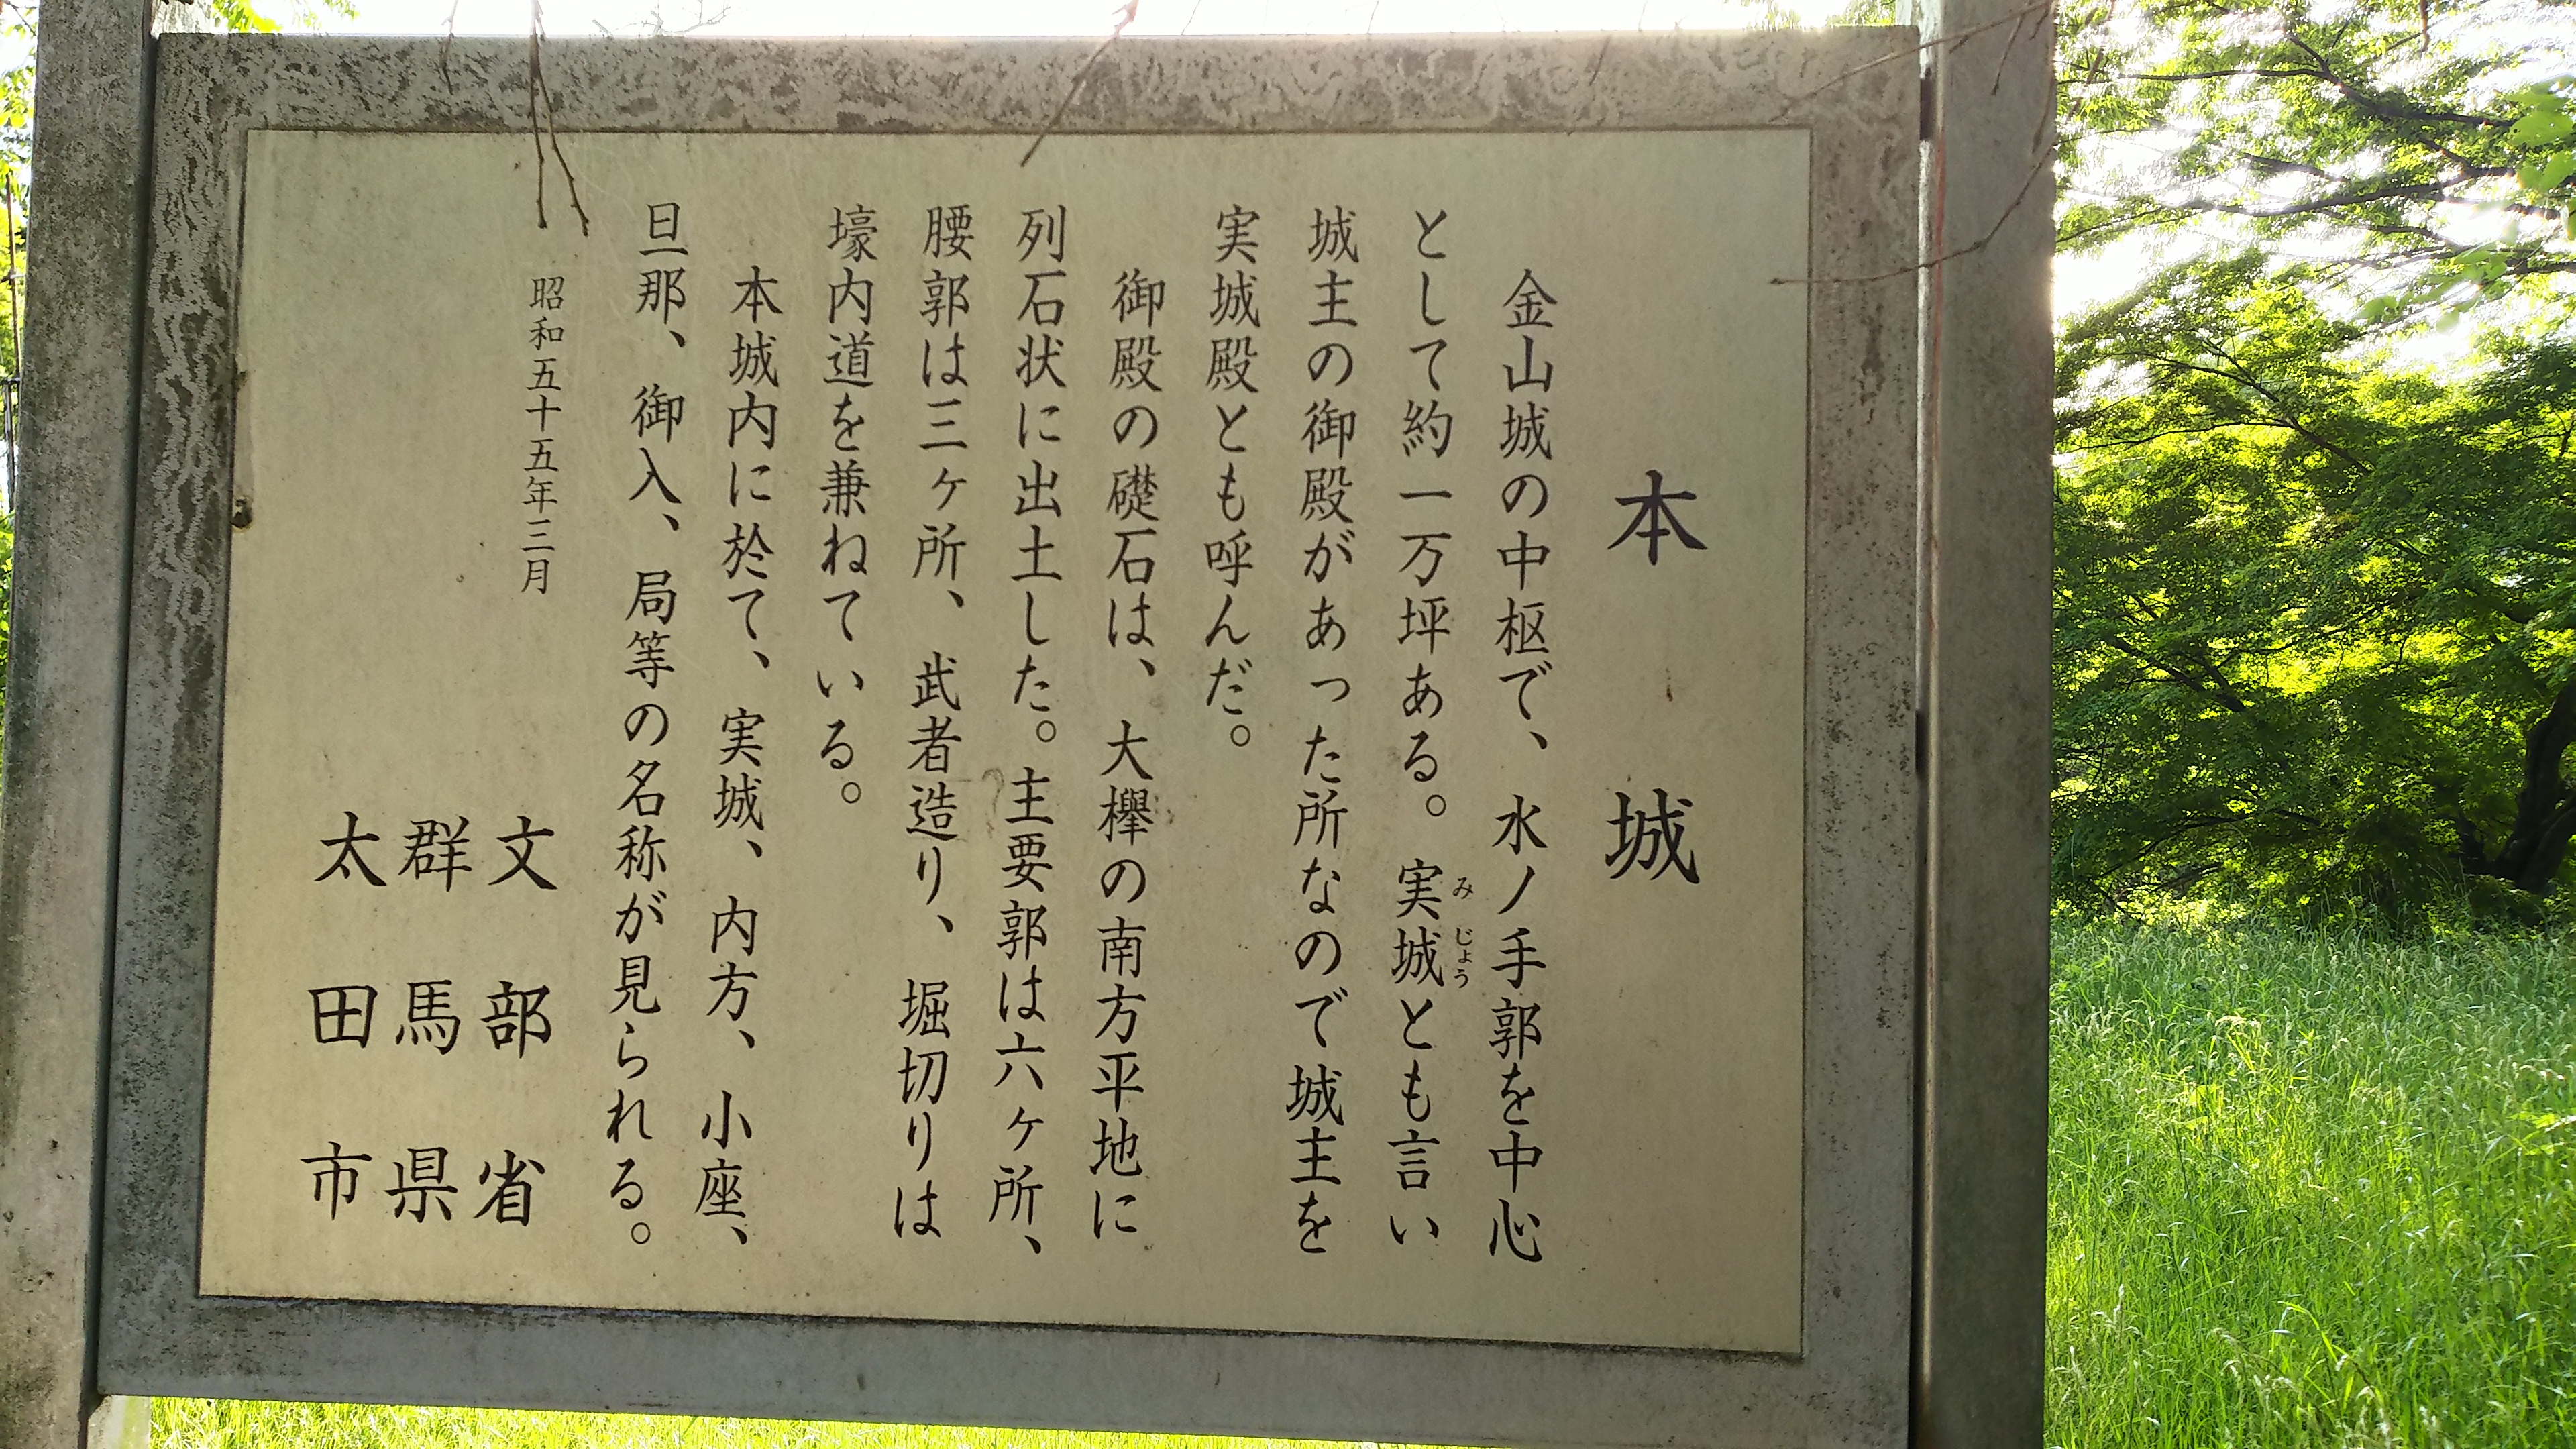 本城
金山城の中枢で、水ノ手郭を中心
として約一万坪ある。実城とも言い
みじょう
城主の御殿があった所なので城主を
実城殿とも呼んだ。
御殿の礎石は、大欅の南方平地に
列石状に出土した。主要郭は六ヶ所、
腰郭は三ヶ所、武者造り、堀切りは
壕内道を兼ねている。
本城内に於て、実城、内方、小座、
旦那、御入、局等の名称が見られる。
昭和五十五年三月
文部省
群馬県
太田市